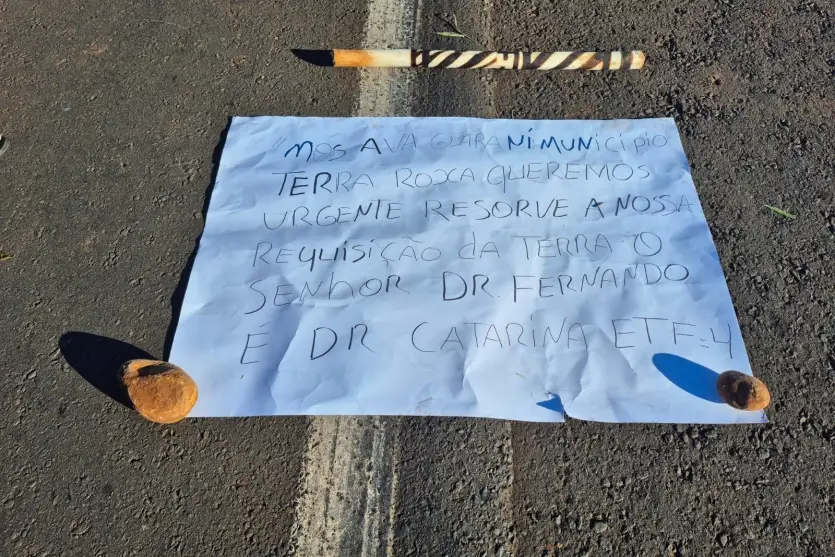 "MOS AVA GUARANÍ MUNICÍPIO
TERRA ROXA QUEREMOS
URGENTE RESORVE A NOSSA
REQUISIÇÃO DA TERRA O
SENHOR DR. FERNANDO
É DR CATARINA